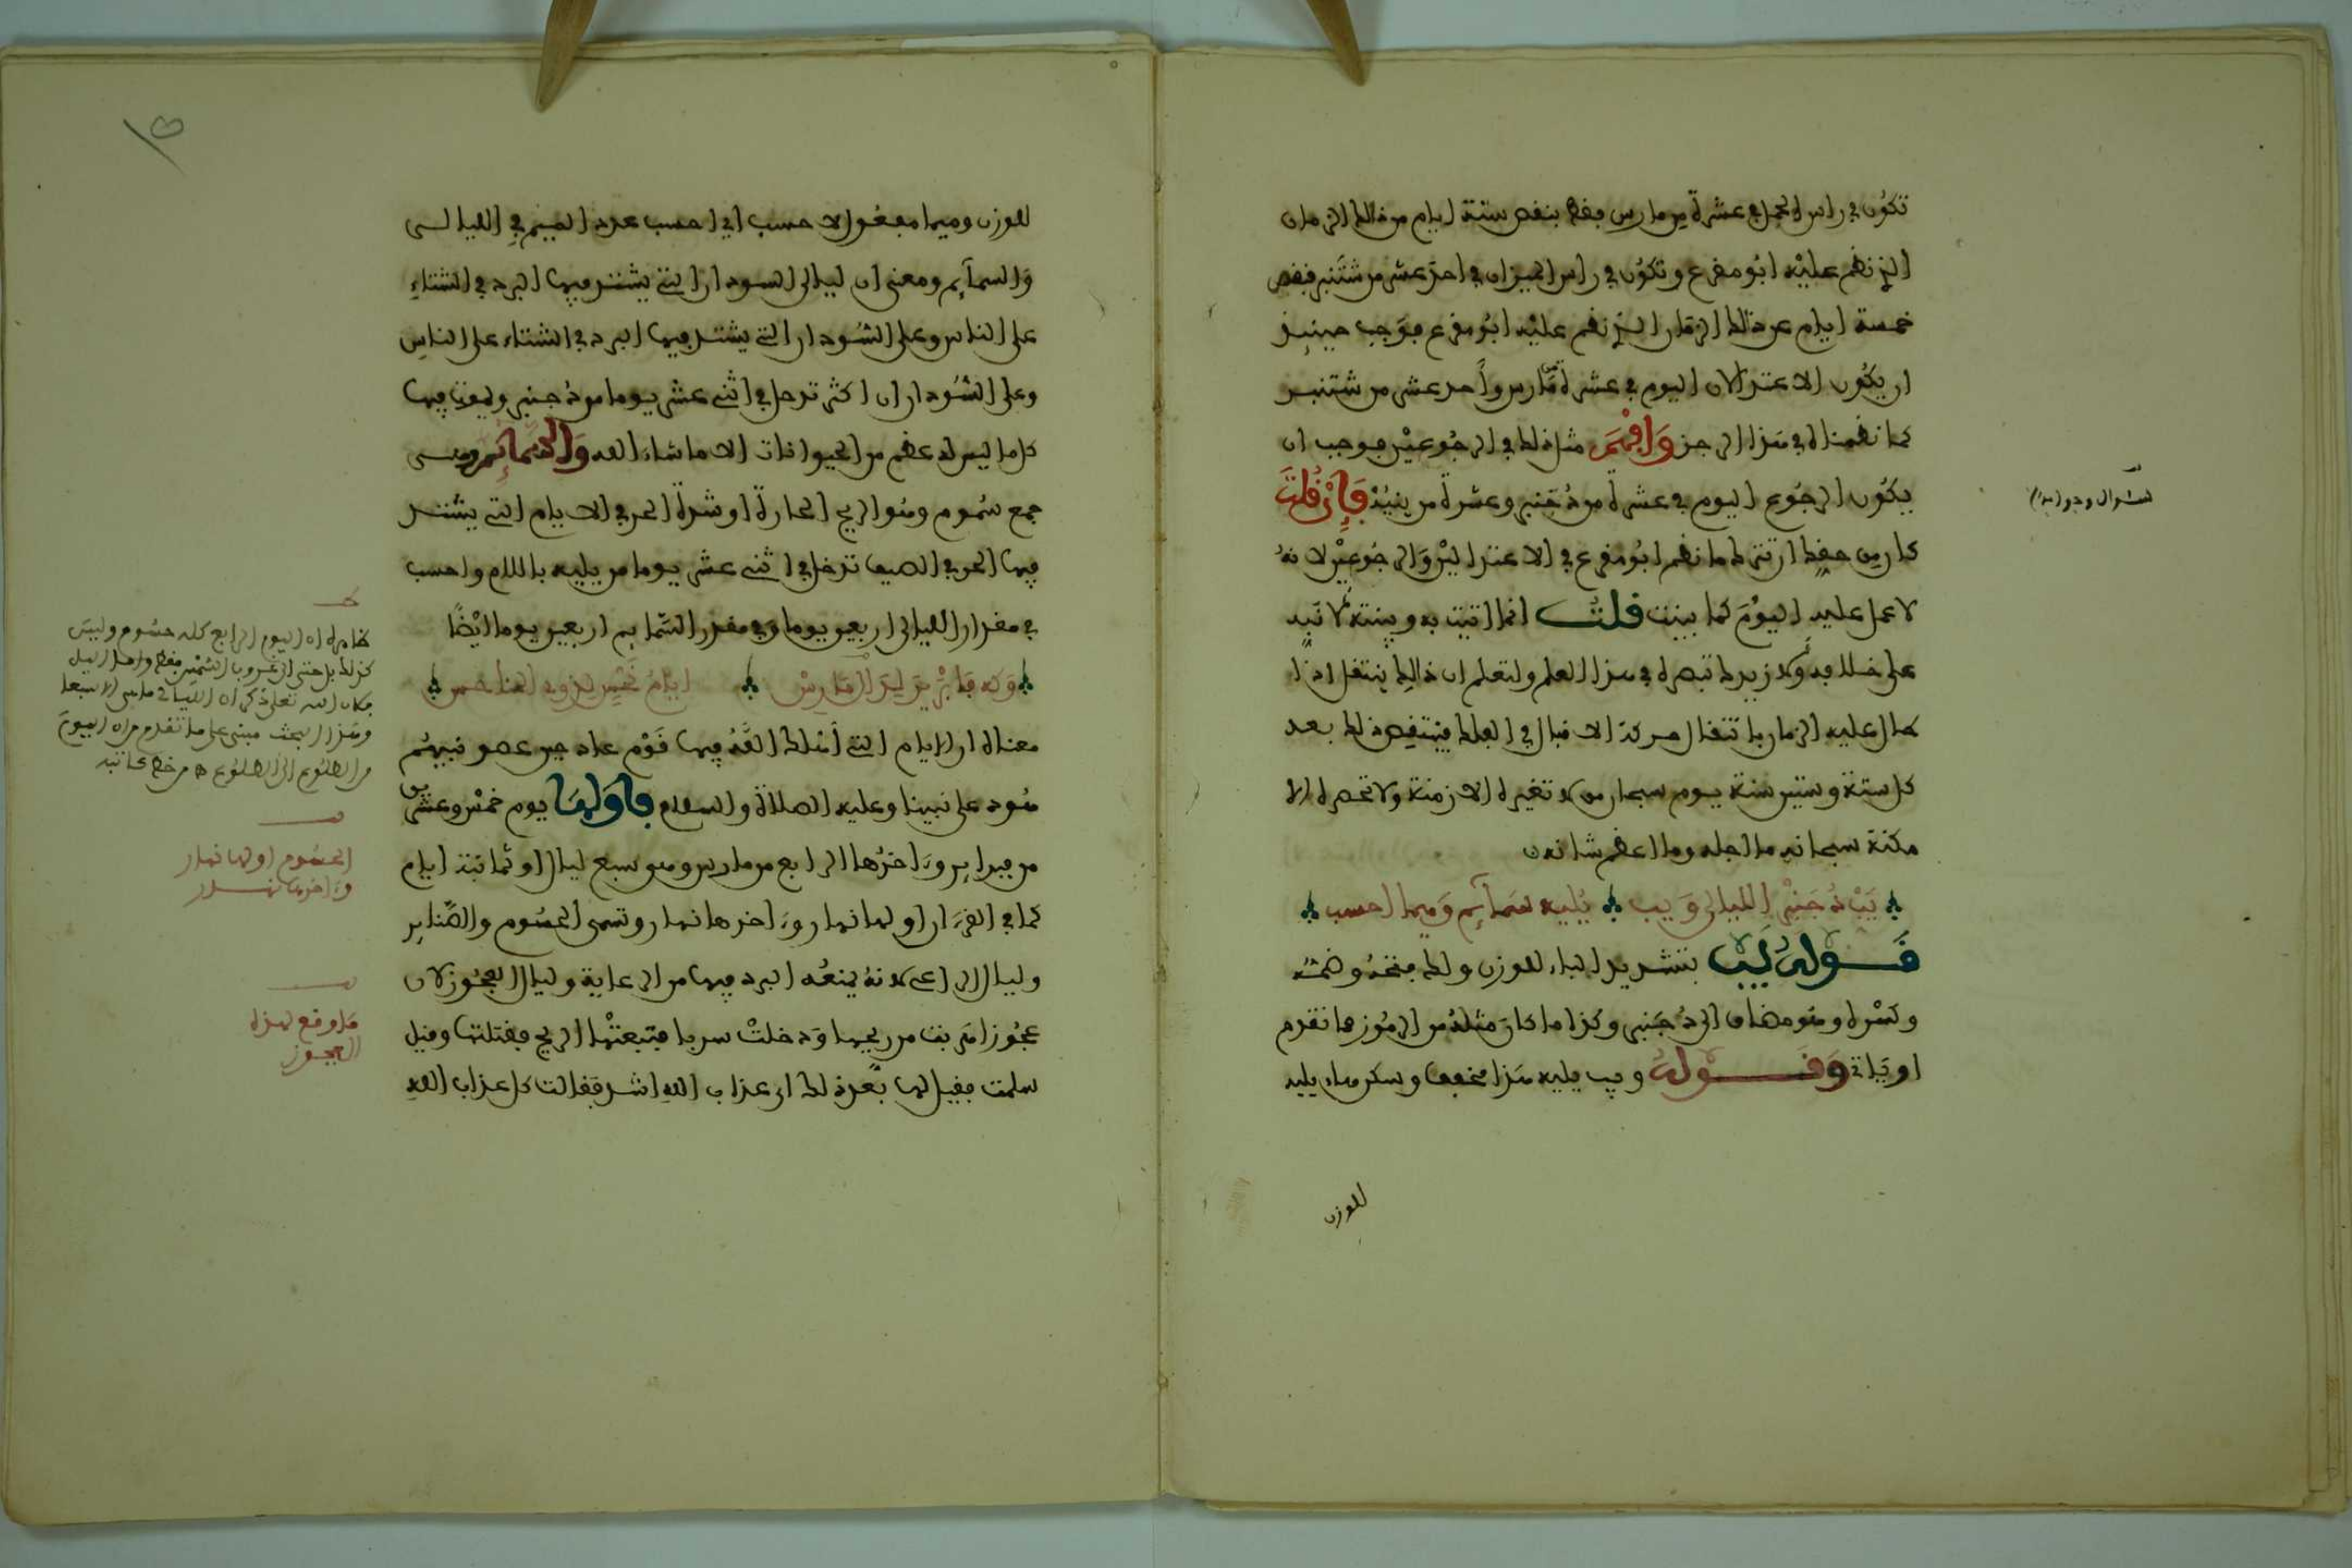 تكون في راس الحمل في عشرة من مارس فقط بنقص ستة ايام من ذالك الزمان
الذ نظم عليه ابو مفرع وتكون في راس الميزان في احد عشر من شتنبر فنقص
خمسة ايام عن ذالك الزمان الذ نظم عليه ابو مفرع فوجب حينئذ
ان يكون الاعتدالان اليوم في عشرة مارس واحد عشر من شتنبر
كما نظمناه في هذا الرجز وافهم مثل ذلك في الرجوعين فوجب ان
يكون الرجوع اليوم في عشرة من دجنبر وعشرة من ينيه فإن قلت
كان من حفك ان تترك ما نظم ابو مفرع في الاعتدالين والرجوعين لانه
لا عمل عليه اليوم كما بينت قلت انما اتيت به وبينته لانبه
على خلله ولازيدك تبصرة في هذا العلم ولتعلم ان ذالك ينتقل اذا
طال عليه الزمان بانتقال حركة الاقبال في الفلك فينقص ذلك بعد
كل ستة وستين سنة يوم سبحان من لا تغيره الازمنة ولا تحصره الا
مكنة سبحانه ما اجله وما اعظم شانه
يب دجنبر الليالي ويب يليه سمآئم وميما احسب
قوله يب بتشديد الباء للوزن ولك فتحه وضمه
وكسره وهو مضاف الى دجنبر وكذا ما كان مثله من الرموز مما تقدم
او ياتي وقوله ويب يليه هذا مخفف وسكن هاء يليه
للوزن
السؤال وجوابه
للوزن وميما مفعول احسب اي احسب عدد الميم في الليالي
والسمآئم ومعنى ان ليالي السودان التي يشتد فيها البرد في الشتاء
على الناس وعلى السودان التي يشتد فيها البرد في الشتاء على الناس
وعلى السودان اكثر تدخل في اثني عشر يوما من دجنبر ويموت فيها
كل ما ليس له عظم من الحيوانات الا ما شاء الله والسمائم وهى
جمع سموم وهو الريح الحارة او شدة الحر في الايام التي يشتد
فيها الحر في الصيف تدخل في اثني عشر يوما من يليه باللام واحسب
في مقدار الليالي اربعين يوما وفي مقدار السمايم اربعين يوما ايضا
وكه فابرير لد مارس ايام نحس لذوي
معناه ان الايام التي اهلك الله فيها قوم عاد حين عصو نبيهم
هود على نبينا وعليه الصلاة والسلام فاولها يوم خمس وعشرين
من فبراير وءاخرها الرابع من مارس وهو سبع ليال وثمانية ايام
كما في القرءان اولها نهار وءاخرها نهار وتسمى الحسوم والصنابر
وليال الراعي لانه يمنعه البرد فيها من الرعاية وليال العجوز لان
عجوزا هربت من ريحها ودخلت سربا فتبعتها الريح فقتلتها وقيل
سلمت فقيل لها بعد ذلك اي عذاب الله اشد فقالت كل عذاب الله
ظاهره ان اليوم الرابع كله حسوم وليس
كذلك بل حتى الى غروب الشمس فقط
وهذا البحث مبني على ما تقدم من ان اليوم
من الطلوع الى الطلوع
الحسوم اولها نهار
وءاخرها نهار
ما وقع لهذه
العجوز